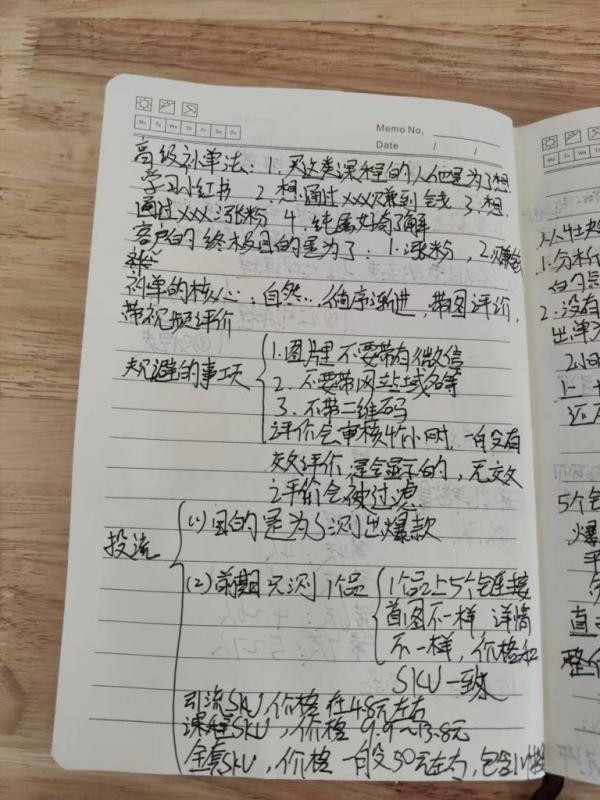 Mo Tu We Th Fr Sa Su
Memo No.
Date / /
高级补单法：1. 买这类课程的人他是为了想
学习小红书 2. 想通过xxx赚到钱 3. 想
通过xxx涨粉 4. 纯属好奇了解
客户的终极目的是为了：1. 涨粉，2. 赚钱
补单的核心：自然…循序渐进，带图评价，
带视频评价
规避的事项
1. 图片里不要带有微信
2. 不要带网站域名等
3. 不带二维码
评价会审核4个小时，一般没有
效评价是会显示的，无效
评价会被过滤
投流
(1) 目的是为了测出爆款
(2) 前期只测1个品
1个品上5个链接
首图不一样 详情
不一样，价格和
SKU一致
引流SKU，价格在4.8元左右
课程SKU，价格 9.9～13.8元
全套SKU，价格一般30元左右，包含
从
1. 分析
2. 没有
出单
上
还
5个
爆
直
整个